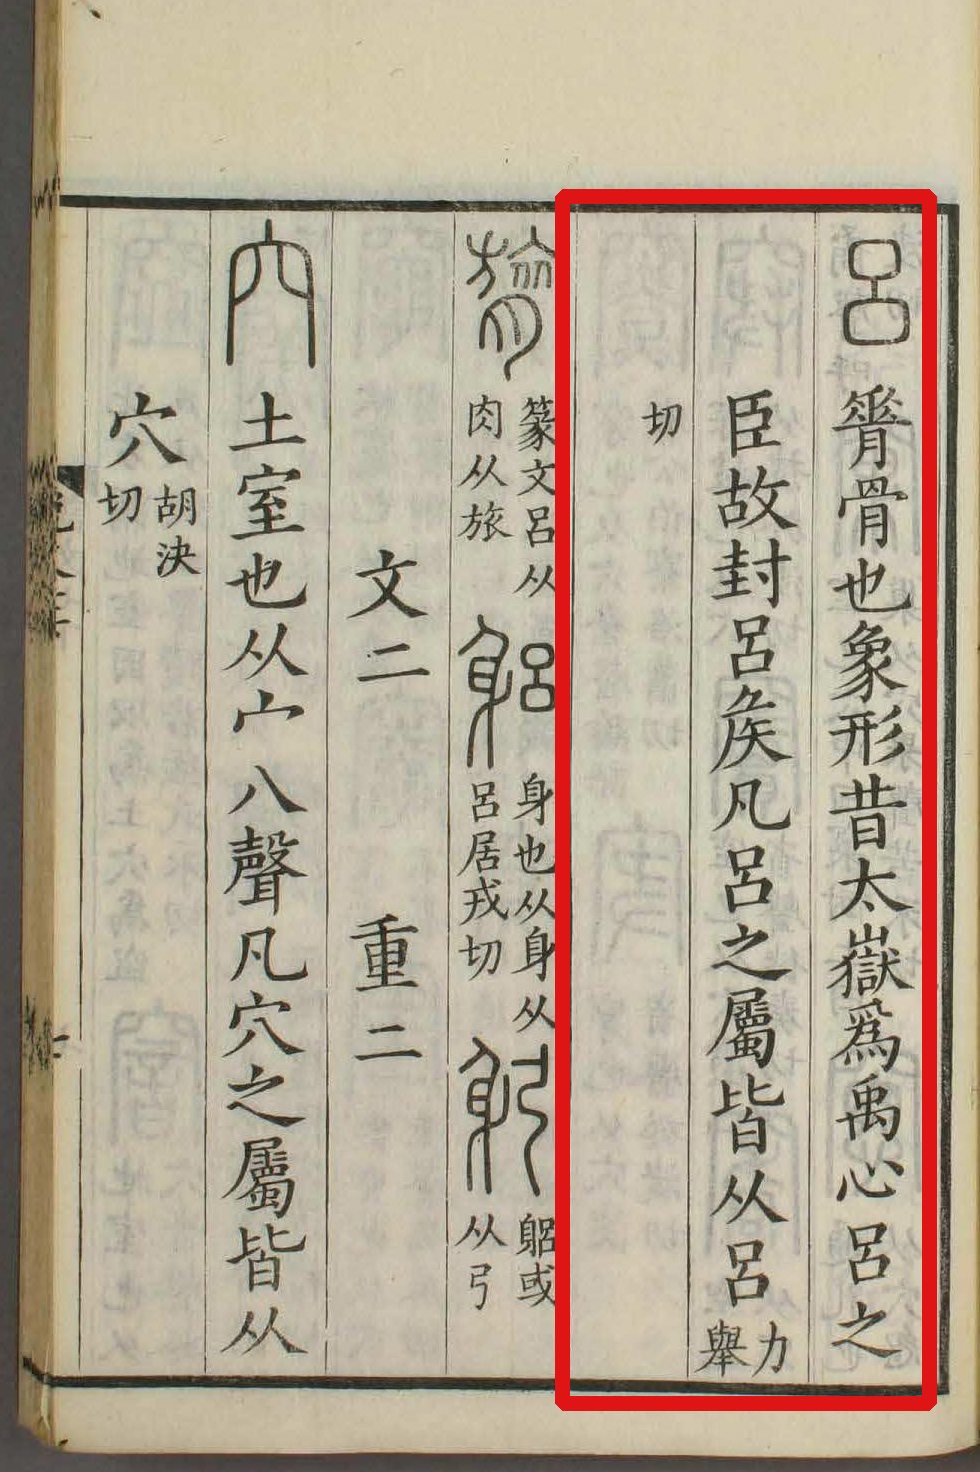 呂
𦟝骨也象形昔太嶽爲禹心呂之
臣故封呂矦凡呂之屬皆从呂力舉
切
篆文呂从肉从旅
躳
身也从身从呂居戎切
躬
躳或从弓
文二 重二
穴
土室也从宀八聲凡穴之屬皆从
穴胡決切